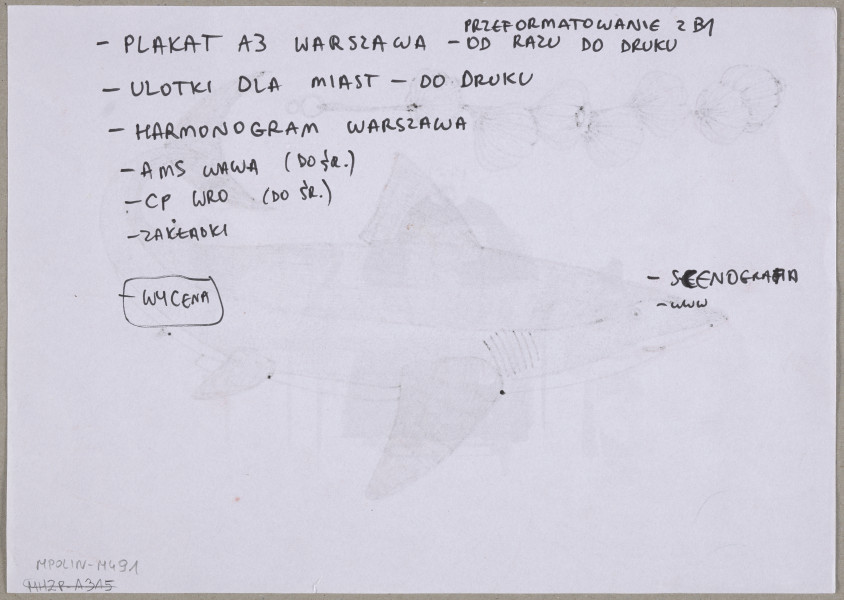 PRZEFORMATOWANIE Z B1
- PLAKAT A3 WARSZAWA - OD RAZU DO DRUKU
- ULOTKI DLA MIAST - DO DRUKU
- HARMONOGRAM WARSZAWA
- AMS WAWA (DO ŚR.)
- CP WRO (DO ŚR.)
- ZAKŁADKI
- WYCENA
- SCENOGRAFIA
- WWW
MPOLIN-M491
MHŻP-A315